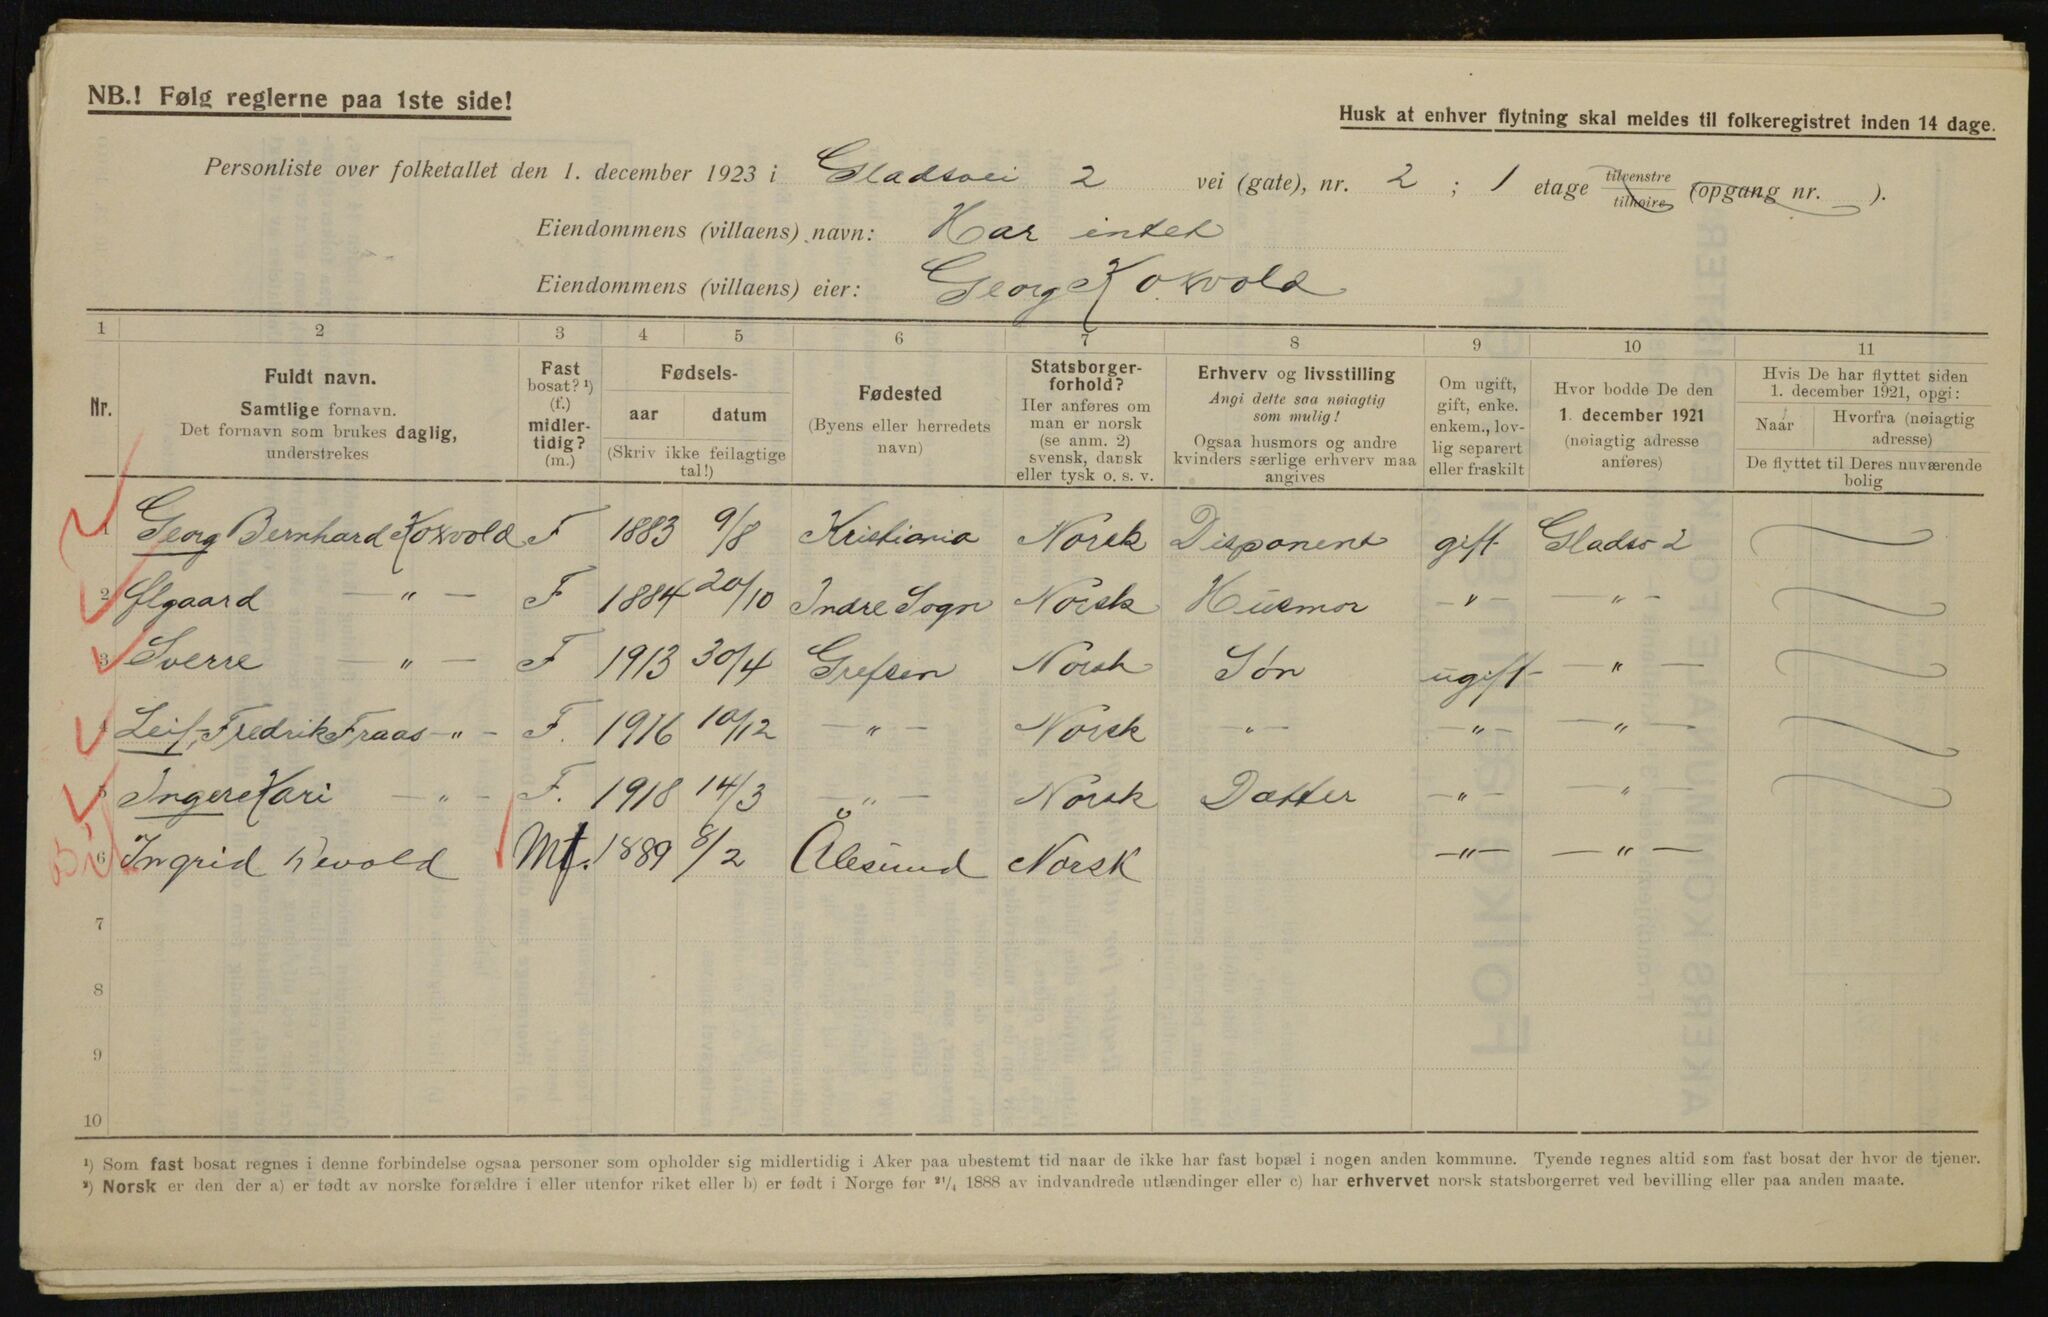 NB.! Følg reglerne paa 1ste side!
Husk at enhver flytning skal meldes til folkeregistret inden 14 dage.
Personliste over folketallet den 1. december 1923 i Gladsvei 2 vei (gate), nr. 2 ; 1 etage tilvenstre tilhøire (opgang nr. ).
Eiendommens (villaens) navn: Har intet
Eiendommens (villaens) eier: Georg Koxvold
1 2 3 4 5 6 7 8 9 10 11
Nr.
Fuldt navn.
Samtlige fornavn.
Det fornavn som brukes daglig,
understrekes
Fast
bosat? ¹)
(f.)
midler-
tidig?
(m.)
Fødsels-
aar datum
(Skriv ikke feilagtige
tal!)
Fødested
(Byens eller herredets
navn)
Statsborger-
forhold?
Her anføres om
man er norsk
(se anm. 2)
svensk, dansk
eller tysk o. s. v.
Erhverv og livsstilling
Angi dette saa nøiagtig
som mulig!
Ogsaa husmors og andre
kvinders særlige erhverv maa
angives
Om ugift,
gift, enke.
enkem., lov-
lig separert
eller fraskilt
Hvor bodde De den
1. december 1921
(nøiagtig adresse
anføres)
Hvis De har flyttet siden
1. december 1921, opgi:
Naar Hvorfra (nøiagtig
adresse)
De flyttet til Deres nuværende
bolig
1 Georg Bernhard Koxvold F 1883 9/8 Kristiania Norsk Disponent gift Gladsv 2
2 Ølgaard —"— F 1884 20/10 Indre Sogn Norsk Husmor —"— —"—
3 Sverre —"— F 1913 30/4 Grefsen Norsk Søn ugift —"—
4 Leif, Fredrik Fraas —"— F. 1916 10/12 —"— Norsk —"— —"— —"—
5 Inger Kari —"— F. 1918 14/3 —"— Norsk Datter —"— —"—
6 Ingrid Devold 1889 8/2 Ålesund Norsk —"— —"—
7
8
9
10
¹) Som fast bosat regnes i denne forbindelse ogsaa personer som opholder sig midlertidig i Aker paa ubestemt tid naar de ikke har fast bopæl i nogen anden kommune. Tyende regnes altid som fast bosat der hvor de tjener.
²) Norsk er den der a) er født av norske forældre i eller utenfor riket eller b) er født i Norge før ²¹/₄ 1888 av indvandrede utlændinger eller c) har erhvervet norsk statsborgerret ved bevilling eller paa anden maate.